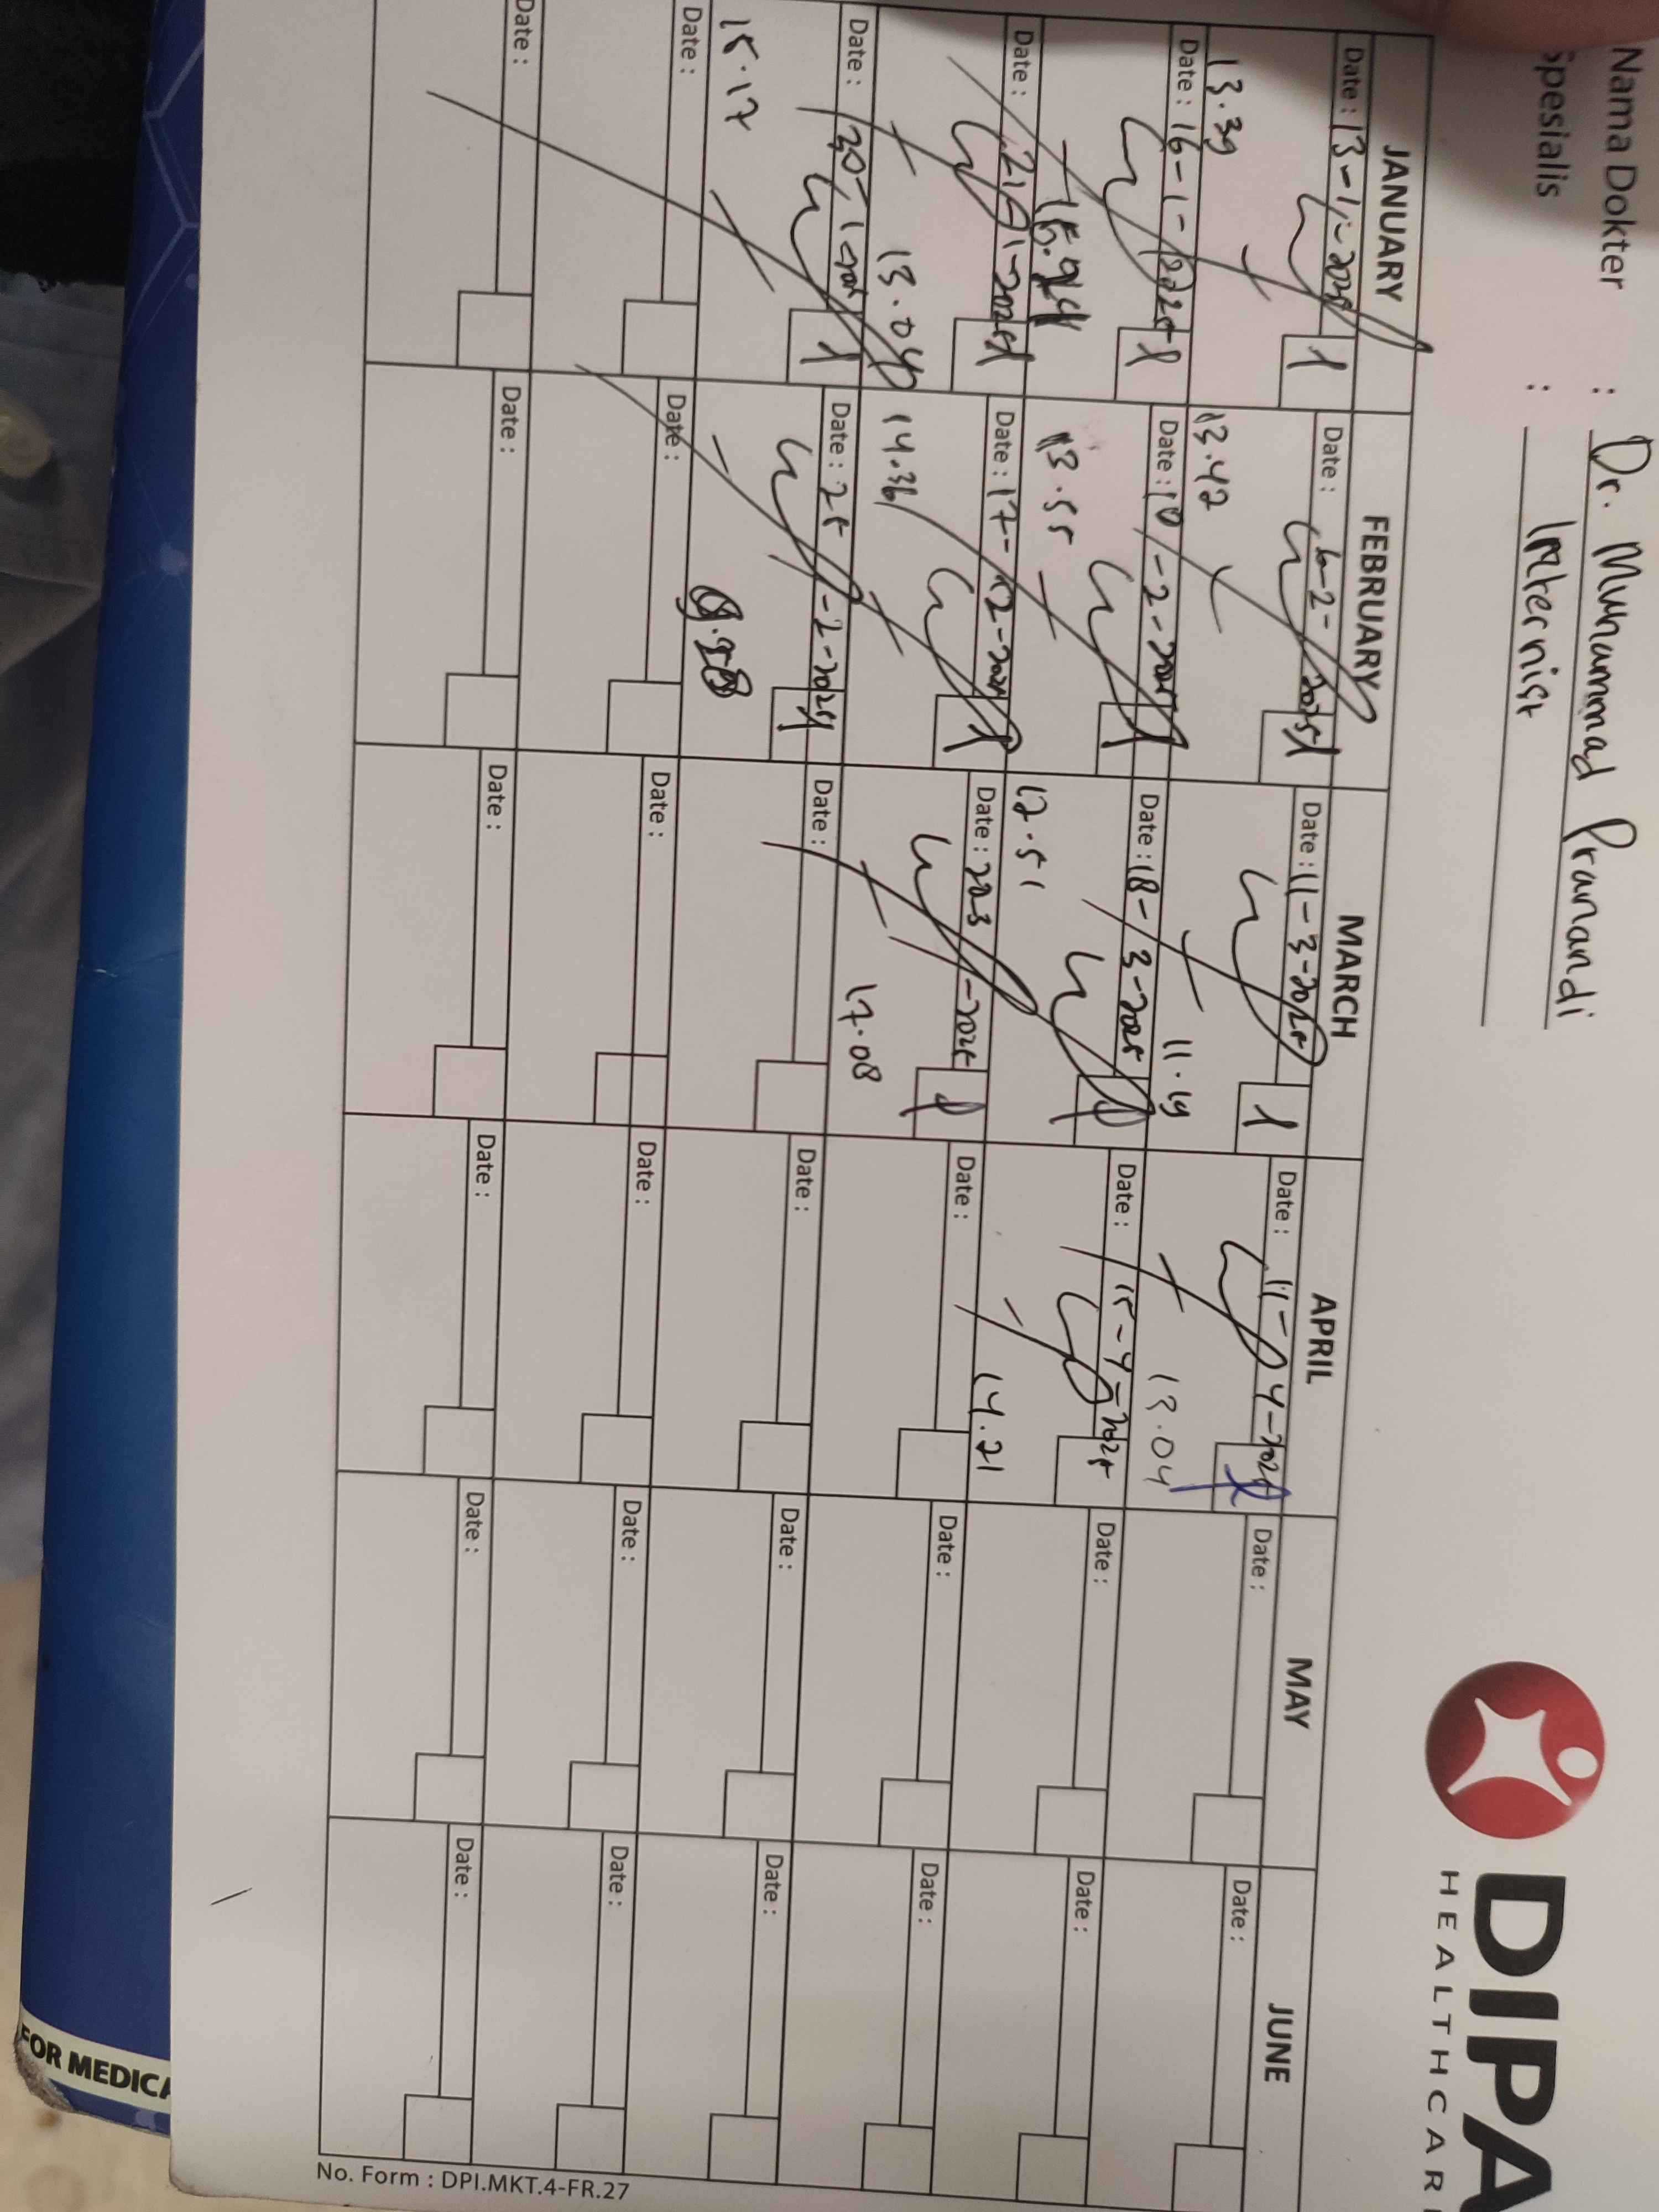 Nama Dokter : Dr. Muhammad Pranandi
Spesialis : Internist
DIPA
HEALTHCAR
JANUARY FEBRUARY MARCH APRIL MAY JUNE
Date : 13-1-2025 Date : 6-2-2025 Date : 11-3-2025 Date : 11-4-2025 Date : Date :
13.39 13.42 11.19 13.04
Date : 16-1-2025 Date : 10-2-2025 Date : 18-3-2025 Date : 15-4-2025 Date : Date :
13.55 12.51 14.21
Date : 21-1-2025 Date : 17-2-2025 Date : 20-3-2025 Date : Date : Date :
13.04 14.36 17.08
Date : 30-1-2025 Date : 25-2-2025 Date : Date : Date : Date :
15.17
Date : Date : Date : Date : Date : Date :
Date : Date : Date : Date : Date : Date :
No. Form : DPI.MKT.4-FR.27
FOR MEDICA